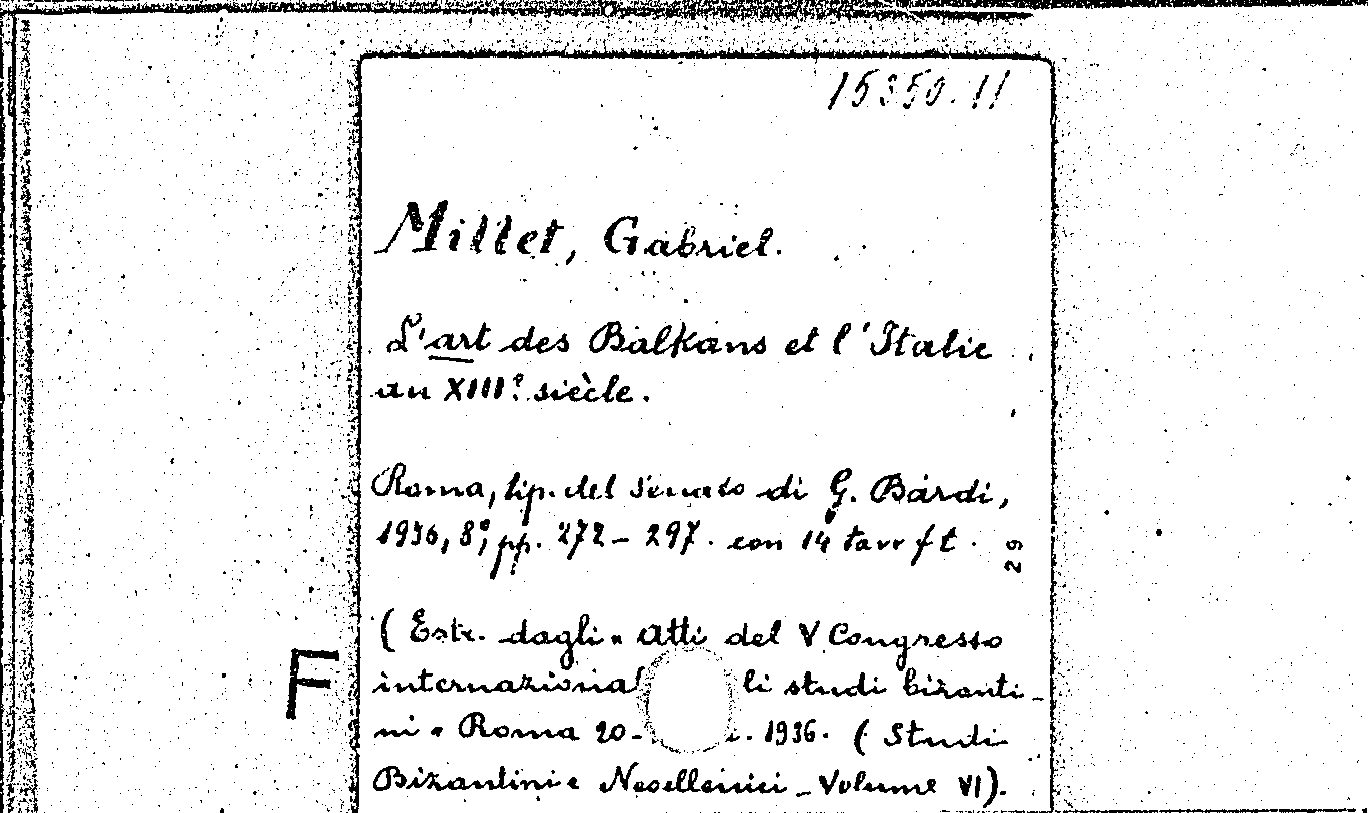 15350.11
Millet, Gabriel.
L'art des Balkans et l'Italie
au XIIIe siècle.
Roma, tip. del Senato di G. Bardi,
1936, 8°, pp. 272 – 297. con 14 tavv f t.
29
( Estr. dagli " Atti del V Congresso
F
internazional li studi bizanti-
ni " Roma 20- 1936. ( Studi
Bizantini e Neoellenici - Volume VI).